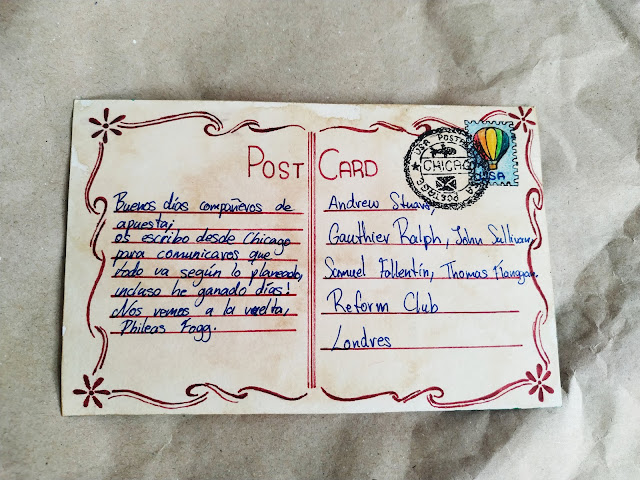 POST CARD
Buenos días compañeros de
apuesta,
os escribo desde Chicago
para comunicaros que
todo va según lo planeado,
incluso he ganado días!
Nos vemos a la vuelta,
Phileas Fogg.
USA POSTAGE
CHICAGO
USA POSTAGE
USA
Andrew Stuart,
Gauthier Ralph, John Sullivan,
Samuel Fallentin, Thomas Flanagan.
Reform Club
Londres